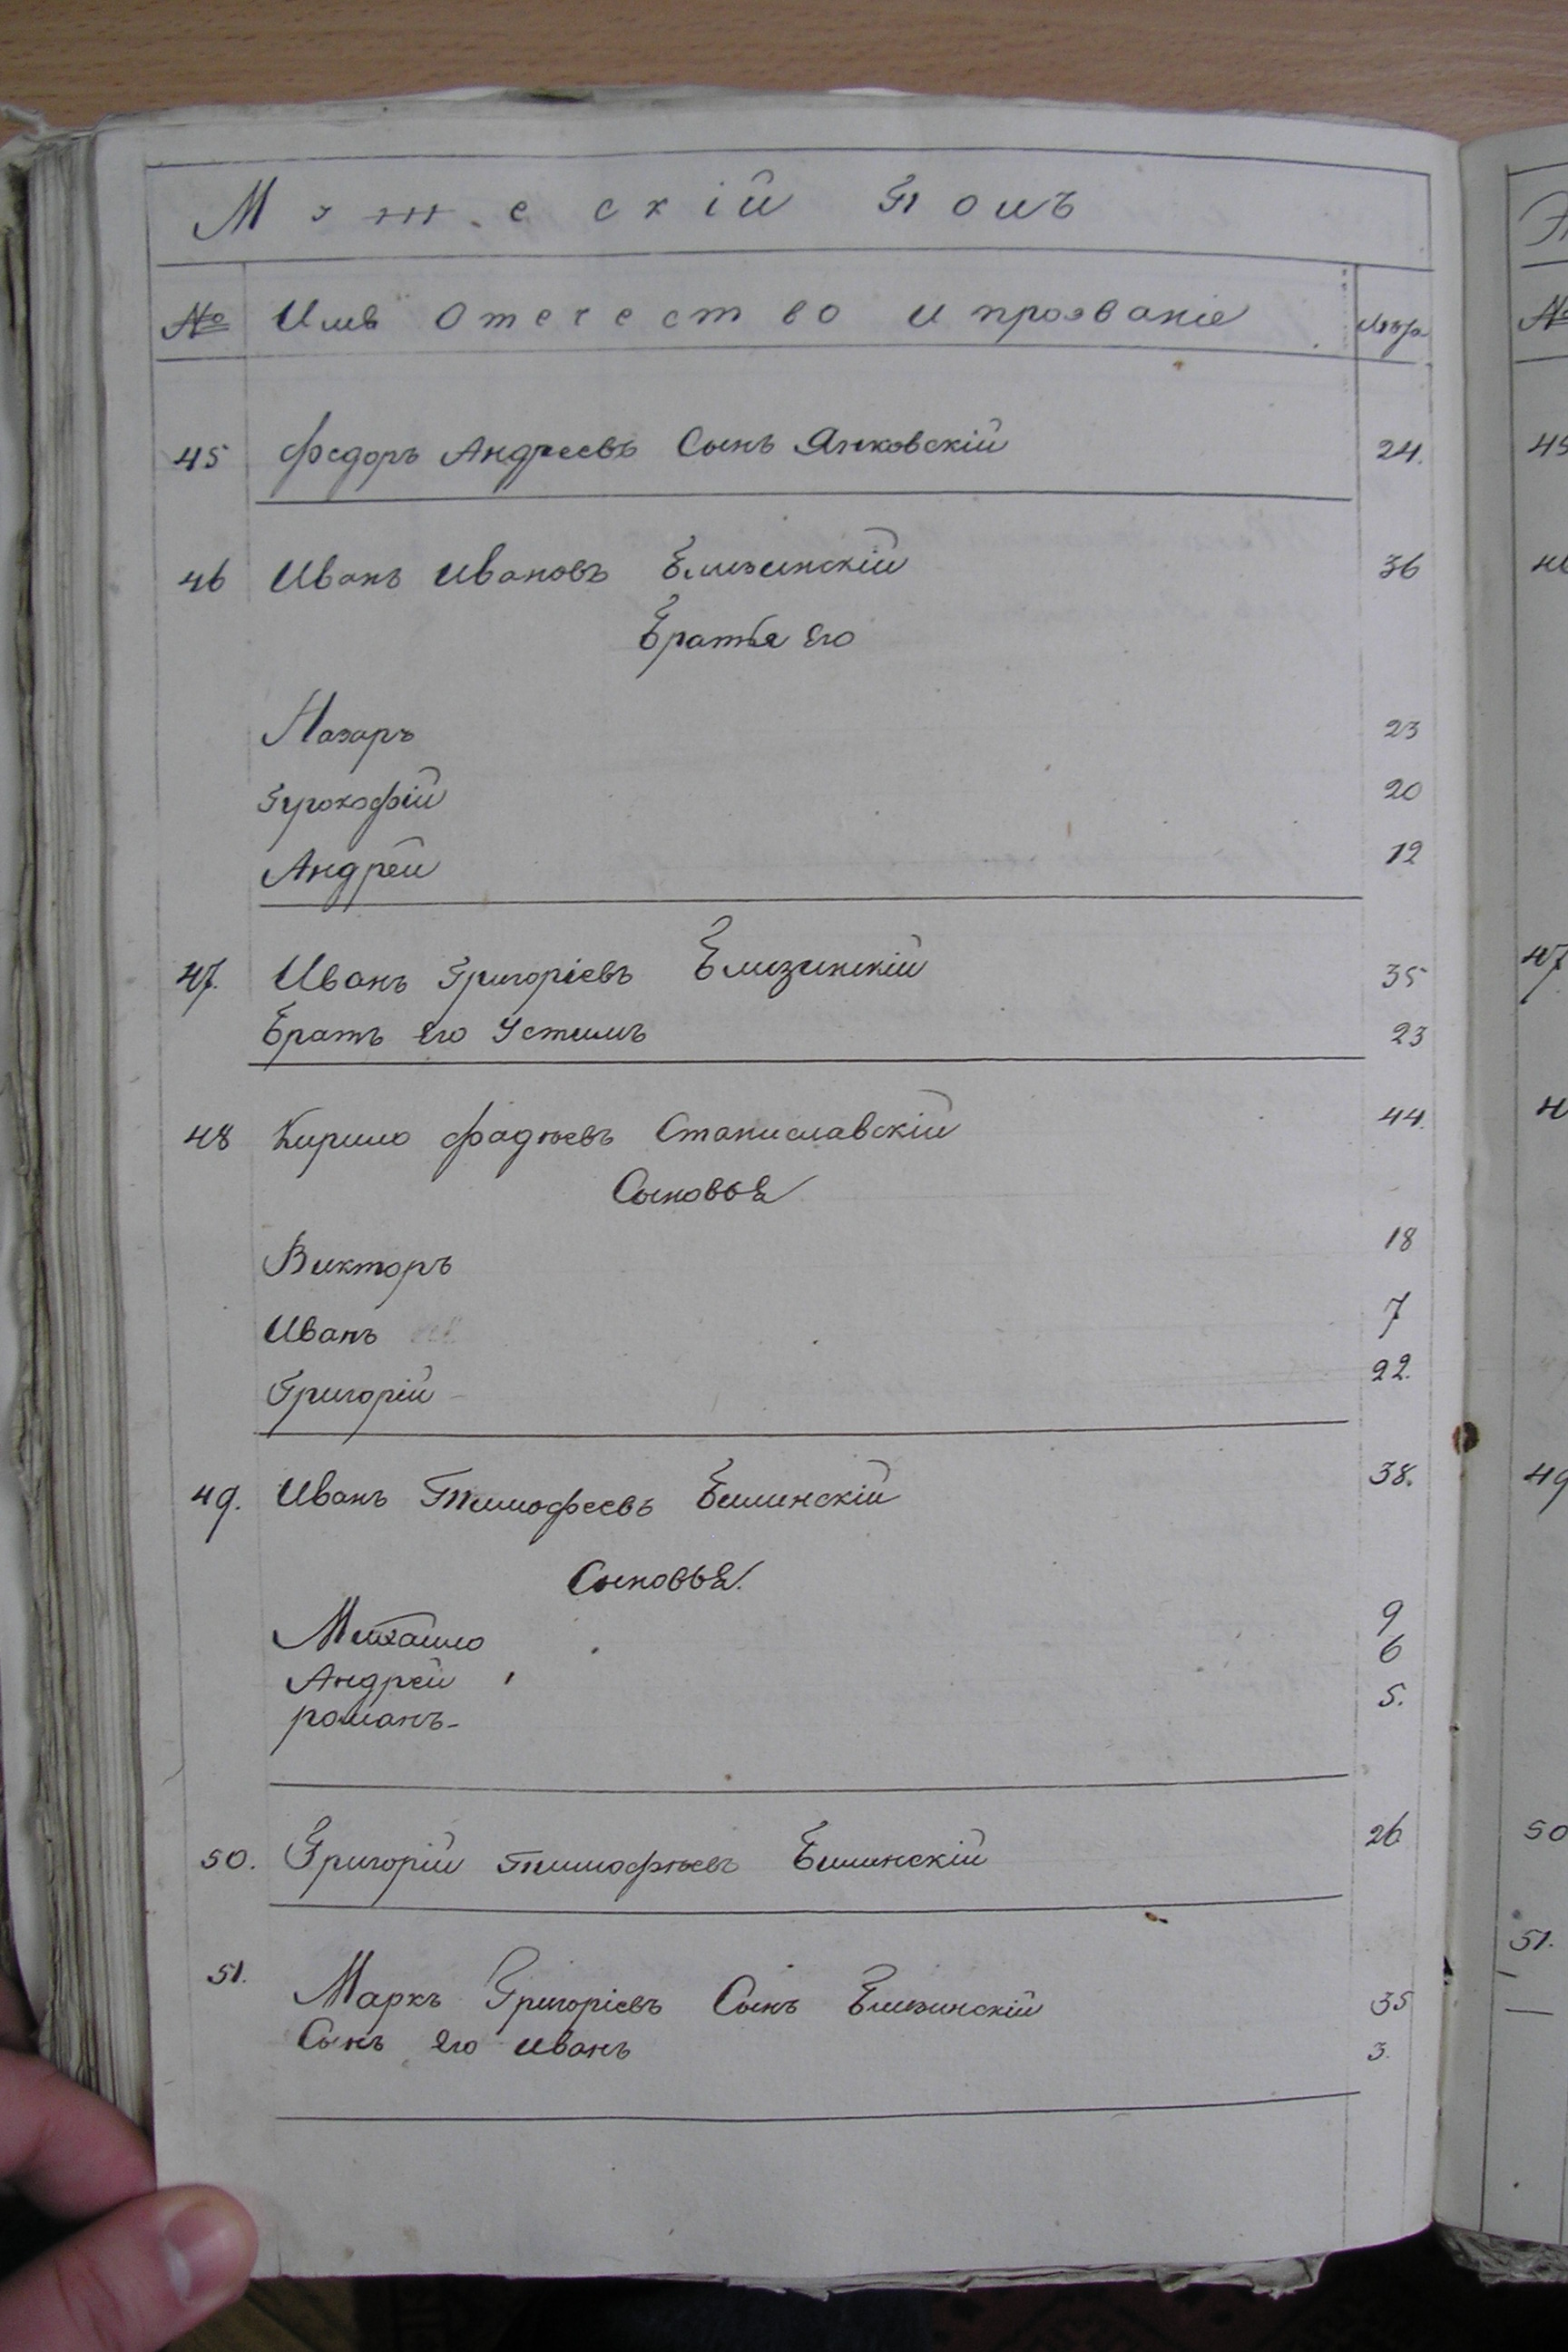 Мужескій Полъ
№ Имя Отечество и прозваніе Лѣта
45 Федоръ Андреевъ Сынъ Янковскій 24.
46 Иванъ Ивановъ Близинскій 36
Братья Его
Назаръ 23
Прокофій 20
Андрей 12
47. Иванъ Григоріевъ Близинскій 35
Братъ его Устимъ 23
48 Кирило Фадѣевъ Станиславскій 44.
Сыновья
Викторъ 18
Иванъ 7
Григорій 22.
49. Иванъ Тимофеевъ Билинскій 38.
Сыновья.
Михайло 9
Андрей 6
романъ 5.
50. Григорій Тимофѣевъ Билинскій 26
51. Маркъ Григоріевъ Сынъ Близинскій 35
Сынъ его иванъ 3.
№
45
47
49
50
51.